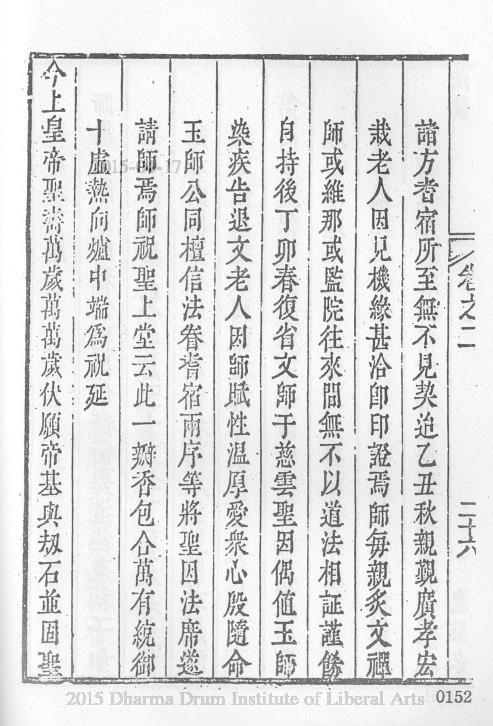 卷之二
二十六
諸方耆宿所至無不見契迨乙丑秋親覲廣孝宏
栽老人因見機緣甚洽即印證焉師每親炙文禪
師或維那或監院往來間無不以道法相証謹餝
自持後丁卯春復省文師于慈雲聖因偶值玉師
染疾告退文老人因師賦性溫厚愛衆心殷隨命
玉師公同檀信法眷耆宿兩序等將聖因法席遂
請師焉師祝聖上堂云此一瓣香包合萬有統御
十虛熱向爐中端爲祝延
今上皇帝聖壽萬歲萬萬歲伏願帝基與劫石並固聖
2015 Dharma Drum Institute of Liberal Arts
0152